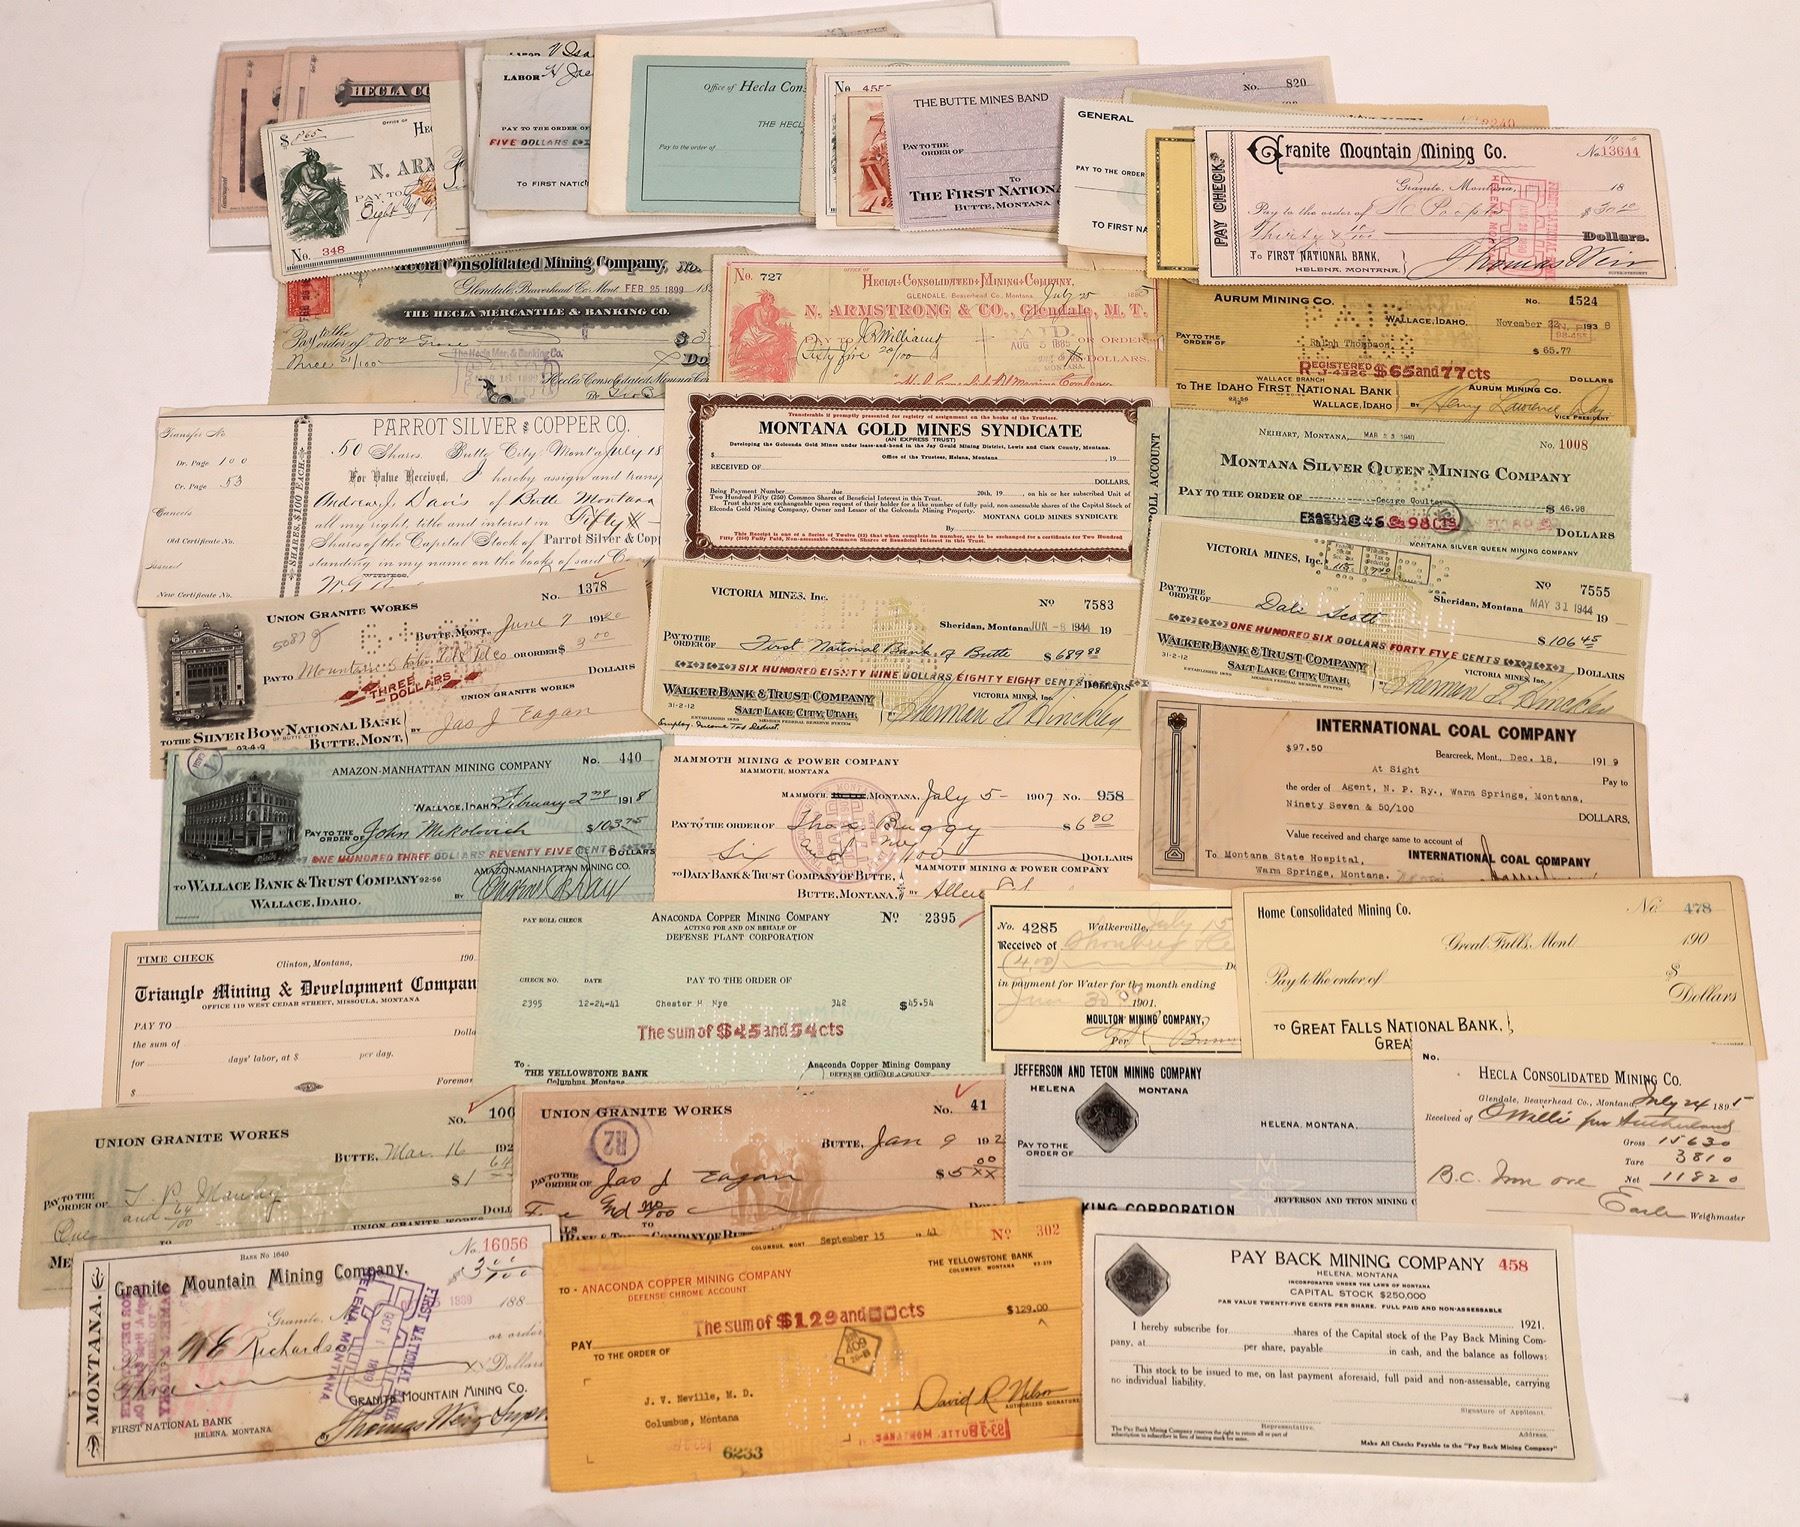 HECLA CO
OFFICE OF
$ 8.65
N. ARM
PAY TO
Eight
No. 348
LABOR
LABOR
PAY TO THE ORDER OF
FIVE DOLLARS
TO FIRST NATIO
Office of Hecla Con
THE HECL
Pay to the order of
No. 455
THE BUTTE MINES BAND
No. 820
PAY TO THE ORDER OF
TO
THE FIRST NATIONA
BUTTE, MONTANA
GENERAL
PAY TO THE ORDER
TO FIRST NA
PAY CHECK
Granite Mountain Mining Co.
No. 13644
Granite, Montana, 18
Pay to the order of
$30 10
Thirty & 10/100 Dollars.
TO FIRST NATIONAL BANK,
HELENA, MONTANA.
Thomas Weir
SUPERINTENDENT
Hecla Consolidated Mining Company, No.
Glendale, Beaverhead Co. Mont. FEB 25 1899
THE HECLA MERCANTILE & BANKING CO.
Pay to the order of
$3
Three 31/100
The Hecla Mer. & Banking Co.
Hecla Consolidated Mining Co
No. 727
OFFICE OF
HECLA CONSOLIDATED MINING COMPANY,
GLENDALE, Beaverhead Co., Montana July 25 188
N. ARMSTRONG & CO., Glendale, M. T.
PAY TO J R Williams OR ORDER
Sixty five 20/100 DOLLARS.
PAID
AUG 5 1885
AURUM MINING CO. No. 1524
WALLACE, IDAHO, November 22 1938
PAY TO THE ORDER OF Ralph Thompson $ 65.77
REGISTERED
R J-4326 $65 and 77 cts DOLLARS
WALLACE BRANCH
TO THE IDAHO FIRST NATIONAL BANK
WALLACE, IDAHO
92-56
12
AURUM MINING CO.
BY Henry Lawrence Day
VICE PRESIDENT
Transfer No
Dr. Page 100
Cr. Page 53
Cancels
Old Certificate No.
Issued
New Certificate No.
SHARES, $10 EACH.
PARROT SILVER & COPPER CO.
50 Shares. Butte City, Montana July 18
For Value Received, I hereby assign and transf
Andrew J. Davis of Butte Montana
all my right, title and interest in Fifty
Shares of the Capital Stock of Parrot Silver & Copp
standing in my name on the books of said Co
WITNESS,
Transferable if promptly presented for registry of assignment on the books of the Trustees.
MONTANA GOLD MINES SYNDICATE
(AN EXPRESS TRUST)
Developing the Golconda Gold Mines under lease-and-bond in the Jay Gould Mining District, Lewis and Clark County, Montana.
Office of the Trustees, Helena, Montana
$ , 19
RECEIVED OF
DOLLARS,
Being Payment Number due 20th, 19 , on his or her subscribed Unit of
Two Hundred Fifty (250) Common Shares of Beneficial Interest in this Trust.
Trust shares are exchangeable upon request of their holder for a like number of fully paid, non-assessable shares of the Capital Stock of
Elconda Gold Mining Company, Owner and Lessor of the Golconda Mining Property.
MONTANA GOLD MINES SYNDICATE
By
This Receipt is one of a Series of Twelve (12) that when complete in number, are to be exchanged for a certificate for Two Hundred
Fifty (250) Fully Paid, Non-assessable Common Shares of Beneficial Interest in this Trust.
OLL ACCOUNT
NEIHART, MONTANA, MAR 23 1940 No. 1008
MONTANA SILVER QUEEN MINING COMPANY
PAY TO THE ORDER OF George Coulter $ 46.98
EXACTLY $46 and 98 CTS DOLLARS
MONTANA SILVER QUEEN MINING COMPANY
No. 1378
UNION GRANITE WORKS
BUTTE, MONT., June 7 1920
PAY TO Mountain States Tel & Tel Co OR ORDER $ 3.00
THREE DOLLARS DOLLARS
UNION GRANITE WORKS
TO THE SILVER BOW NATIONAL BANK
OF BUTTE CITY
93-4-9 BUTTE, MONT.
BY Jas J Eagan
VICTORIA MINES, Inc. No 7583
Sheridan, Montana JUN -8 1944 19
PAY TO THE ORDER OF First National Bank of Butte $ 689 88
SIX HUNDRED EIGHTY NINE DOLLARS EIGHTY EIGHT CENTS DOLLARS
WALKER BANK & TRUST COMPANY
31-2-12 SALT LAKE CITY, UTAH.
VICTORIA MINES, Inc.
Sherman D. Hinckley
Employ. Income Tax Deduct.
VICTORIA MINES, Inc. No 7555
Sheridan, Montana MAY 31 1944 19
PAY TO THE ORDER OF Dale Scott $ 106 45
ONE HUNDRED SIX DOLLARS FORTY FIVE CENTS DOLLARS
WALKER BANK & TRUST COMPANY
31-2-12 SALT LAKE CITY, UTAH.
VICTORIA MINES, Inc.
Sherman D. Hinckley
AMAZON-MANHATTAN MINING COMPANY No. 440
WALLACE, IDAHO, February 2nd 1918
PAY TO THE ORDER OF John Mikolovich $103.75
ONE HUNDRED THREE DOLLARS SEVENTY FIVE CENTS DOLLARS
AMAZON-MANHATTAN MINING CO.
TO WALLACE BANK & TRUST COMPANY 92-56
WALLACE, IDAHO.
BY
MAMMOTH MINING & POWER COMPANY
MAMMOTH, MONTANA
MAMMOTH, MONTANA, July 5- 1907 No. 958
PAY TO THE ORDER OF Thos. Buggy $6 00
Six and no/100 DOLLARS
MAMMOTH MINING & POWER COMPANY
TO DALY BANK & TRUST COMPANY OF BUTTE,
BUTTE, MONTANA,
BY
INTERNATIONAL COAL COMPANY
$97.50 Bearcreek, Mont., Dec. 18, 1919
At Sight Pay to
the order of Agent, N. P. Ry., Warm Springs, Montana,
Ninety Seven & 50/100
DOLLARS,
Value received and charge same to account of
To Montana State Hospital, INTERNATIONAL COAL COMPANY
Warm Springs, Montana.
TIME CHECK
Clinton, Montana, 190
Triangle Mining & Development Compan
OFFICE 110 WEST CEDAR STREET, MISSOULA, MONTANA
PAY TO
the sum of Dolla
for days' labor, at $ per day.
$ Foreman
PAY ROLL CHECK ANACONDA COPPER MINING COMPANY No 2395
ACTING FOR AND ON BEHALF OF
DEFENSE PLANT CORPORATION
CHECK NO. DATE PAY TO THE ORDER OF
2395 12-24-41 Chester H Nye 342 $45.54
The sum of $45 and 54 cts
To THE YELLOWSTONE BANK
Columbus, Montana
Anaconda Copper Mining Company
DEFENSE CHROME ACCOUNT
No. 4285 Walkerville, July 15
Received of
(4.00)
in payment for Water for the month ending
June 30 1901.
MOULTON MINING COMPANY,
Per
Home Consolidated Mining Co. No. 478
Great Falls, Mont 190
Pay to the order of $
Dollars
TO GREAT FALLS NATIONAL BANK,
GREA
No. 100
UNION GRANITE WORKS
BUTTE, Mar. 16 192
PAY TO THE ORDER OF $1 64
One and 64/100 DOLL
UNION GRANITE WORKS
UNION GRANITE WORKS No. 41
R2
BUTTE, Jan 9 192
PAY TO THE ORDER OF Jas J Eagan $5 00
Five and no/100
TO
BANK & TRUST COMPANY OF BUTTE
JEFFERSON AND TETON MINING COMPANY
HELENA MONTANA
HELENA, MONTANA,
PAY TO THE ORDER OF
JEFFERSON AND TETON MINING C
KING CORPORATION
No.
HECLA CONSOLIDATED MINING CO.
Glendale, Beaverhead Co., Montana, July 24 1895
Received of O Willis for Sutherland
Gross 15630
Tare 3810
Net 11820
B.C. Iron ore
Earle Weighmaster
BANK No 1640
No. 16056
MONTANA.
Granite Mountain Mining Company,
Granite, 188
$3 00/100
W E Richards or order
Dollars
GRANITE MOUNTAIN MINING CO.
FIRST NATIONAL BANK
HELENA, MONTANA
Thomas Weir Supt
FIRST NATIONAL BANK
HELENA MONTANA
OCT 1 1889
COLUMBUS, MONT September 15 41 No 302
TO - ANACONDA COPPER MINING COMPANY
DEFENSE CHROME ACCOUNT
THE YELLOWSTONE BANK
COLUMBUS, MONTANA 93-219
The sum of $129 and 00 cts $129.00
PAY
TO THE ORDER OF
J. V. Neville, M. D.
Columbus, Montana
David R. Nelson
AUTHORIZED SIGNATURE
6233
PAY BACK MINING COMPANY 458
HELENA, MONTANA
INCORPORATED UNDER THE LAWS OF MONTANA
CAPITAL STOCK $250,000
PAR VALUE TWENTY-FIVE CENTS PER SHARE. FULL PAID AND NON-ASSESSABLE
1921.
I hereby subscribe for shares of the Capital stock of the Pay Back Mining Com-
pany, at per share, payable in cash, and the balance as follows:
This stock to be issued to me, on last payment aforesaid, full paid and non-assessable, carrying
no individual liability.
Signature of Applicant.
Representative. Address.
The Pay Back Mining Company reserves the right to return all or part of
subscription to subscriber in lieu of issuing stock for same.
Make All Checks Payable to the "Pay Back Mining Company"